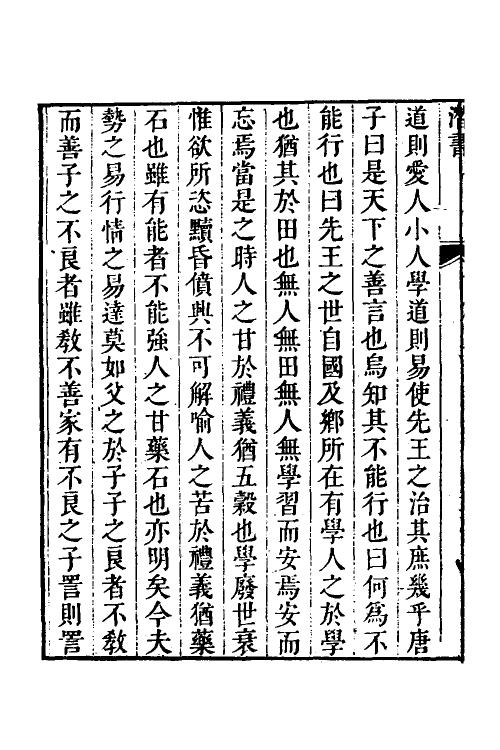 潛書
道則愛人小人學道則易使先王之治其庶幾乎唐
子曰是天下之善言也烏知其不能行也曰何爲不
能行也曰先王之世自國及鄉所在有學人之於學
也猶其於田也無人無田無人無學習而安焉安而
忘焉當是之時人之甘於禮義猶五穀也學廢世衰
惟欲所恣黷昏僨興不可解喻人之苦於禮義猶藥
石也雖有能者不能強人之甘藥石也亦明矣今夫
勢之易行情之易達莫如父之於子子之良者不敎
而善子之不良者雖敎不善家有不良之子詈則詈